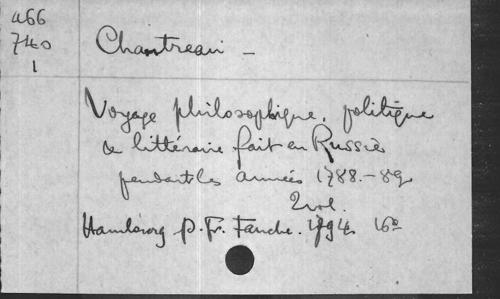 466
740
1
Chantreau –
Voyage philosophique, politique
& littéraire fait en Russie
pendant les années 1788.–89
2 vol.
Hambourg P. Fr. Fauche. 1794 16º